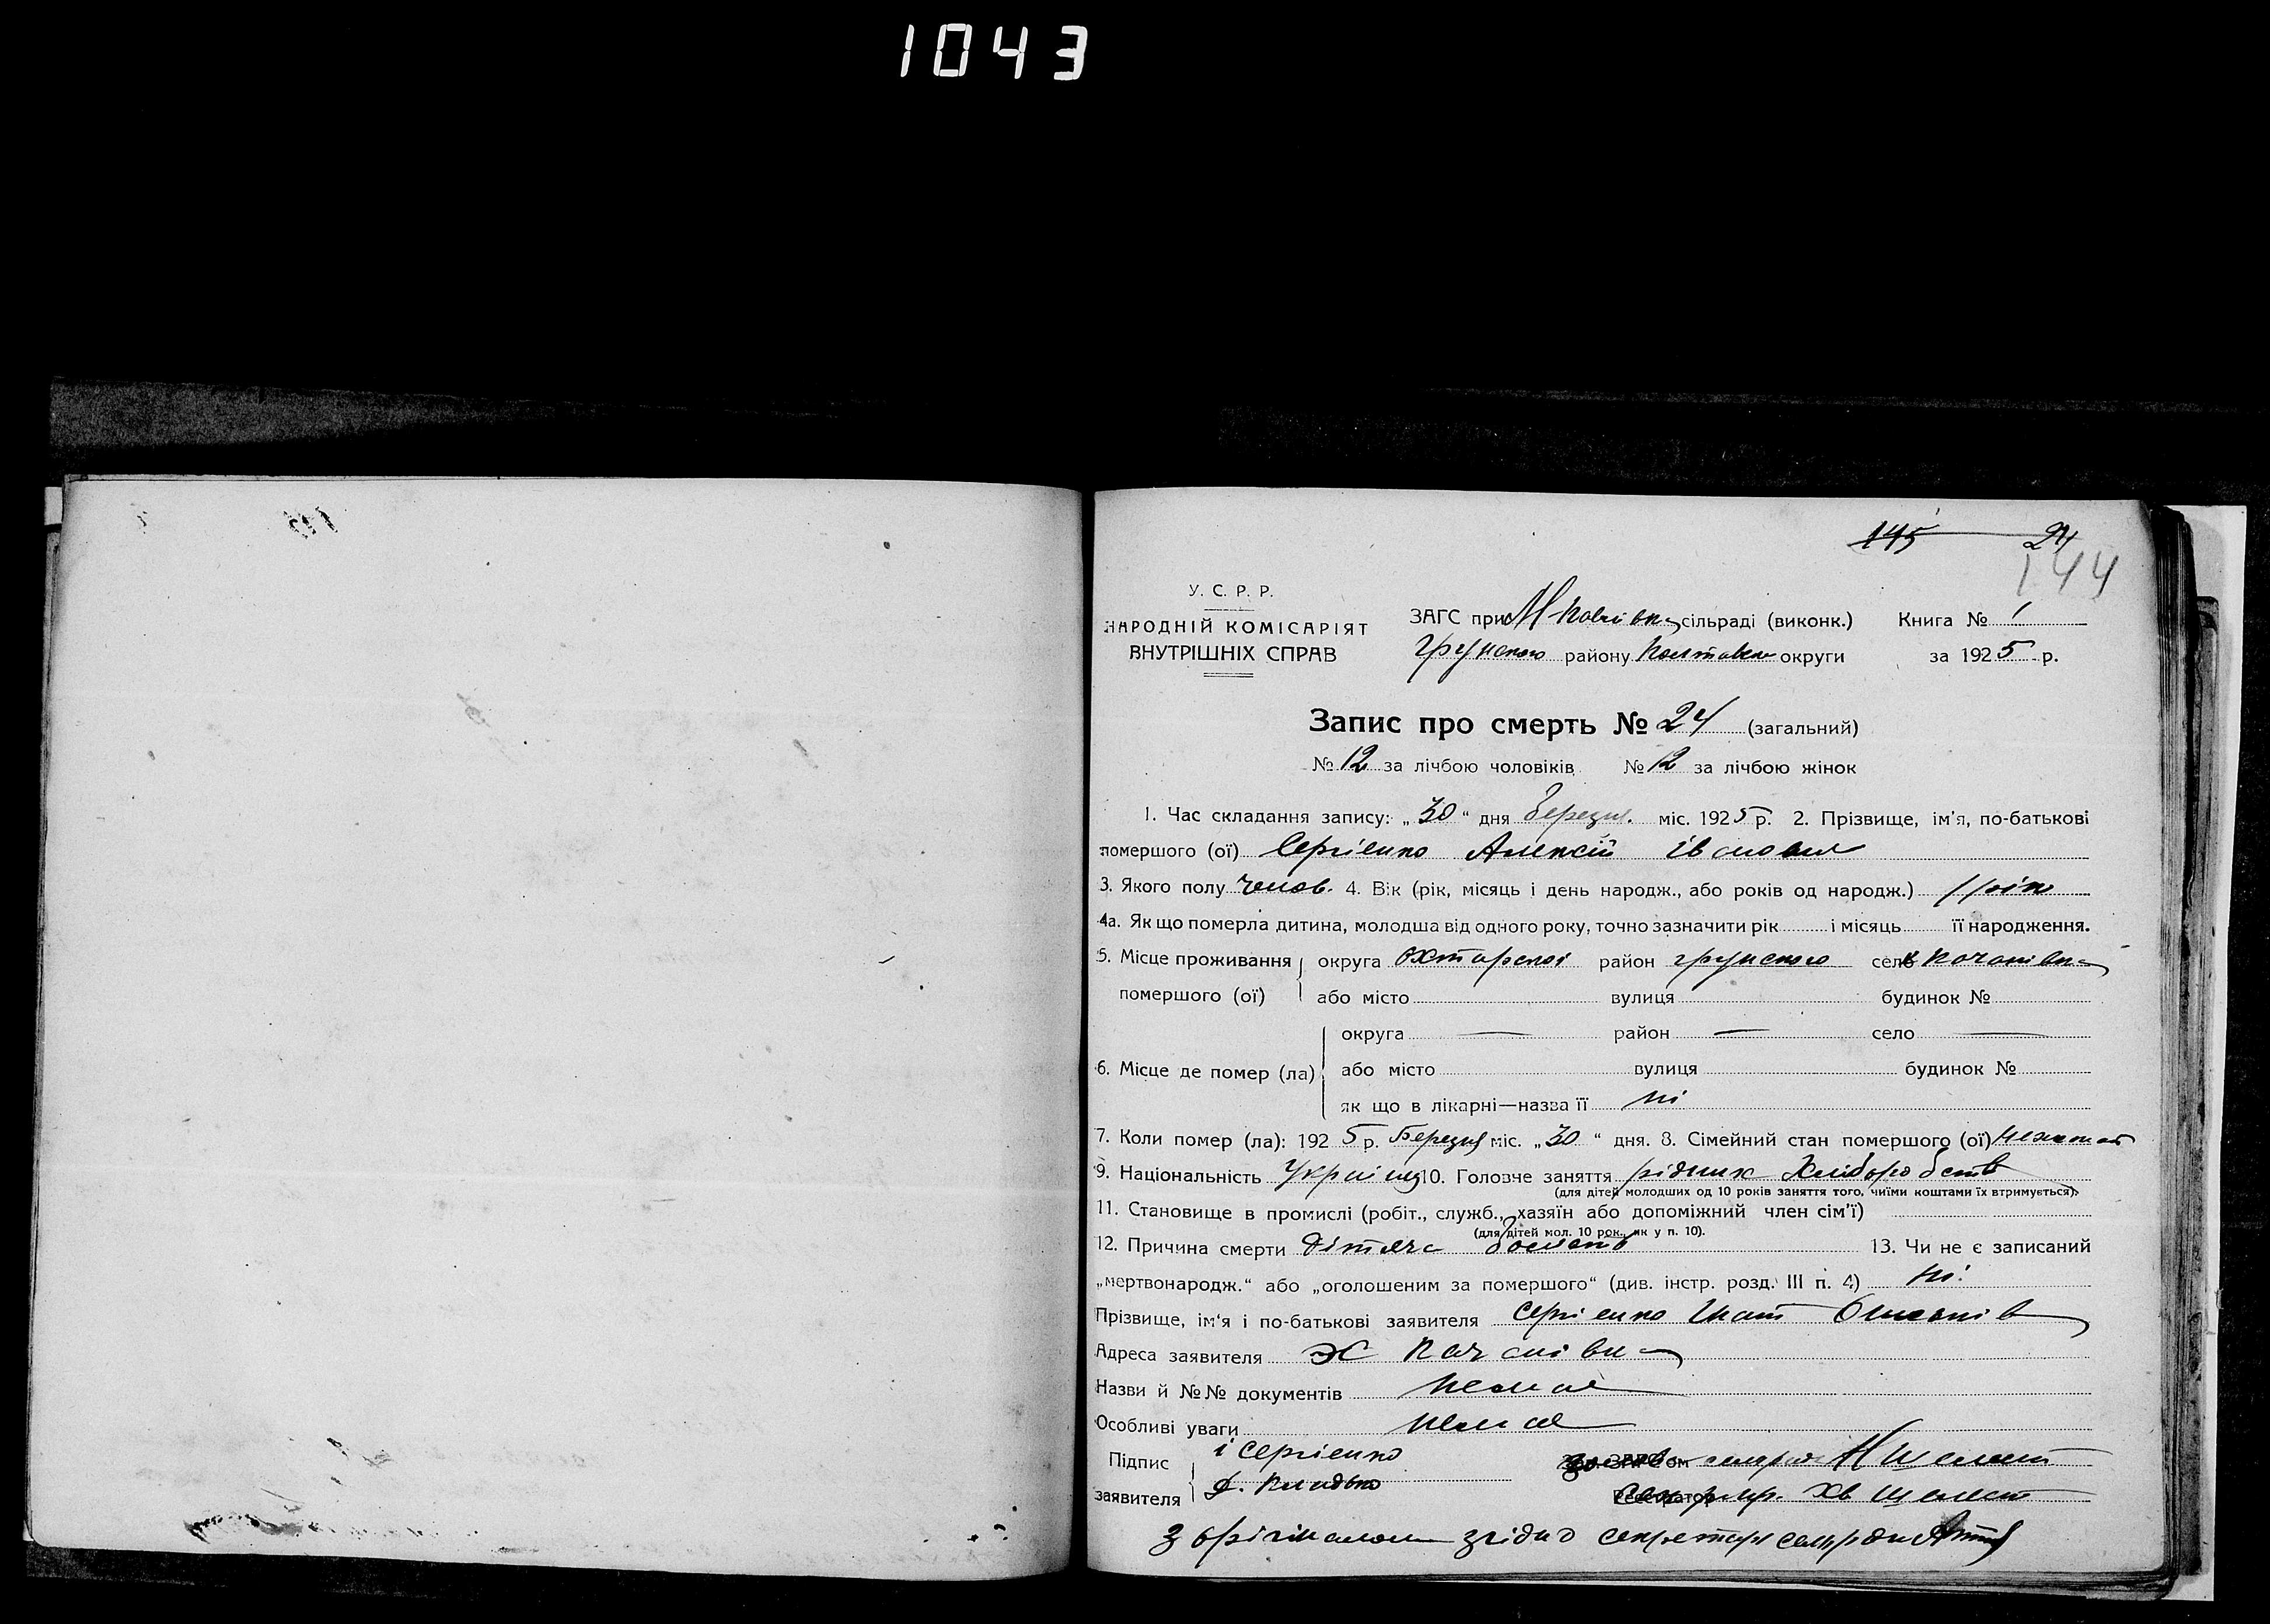 1043
145 24
144
У. С. Р. Р.
НАРОДНІЙ КОМІСАРІЯТ
ВНУТРІШНІХ СПРАВ
ЗАГС при сільраді (виконк.) Книга № 1
Грунского району Полтавск округи за 1925 р.
Запис про смерть № 24 (загальний)
№ 12 за лічбою чоловіків № 12 за лічбою жінок
1. Час складання запису: „30“ дня березня міс. 1925 р. 2. Прізвище, ім'я, по-батькові
помершого (ої) Сергіенко Алексій
3. Якого полу чолов. 4. Вік (рік, місяць і день народж., або років од народж.) 1 рік
4а. Як що померла дитина, молодша від одного року, точно зазначити рік і місяць її народження.
5. Місце проживання округа район грунского село
помершого (ої) або місто вулиця будинок №
округа — район — село —
6. Місце де помер (ла) або місто вулиця будинок №
як що в лікарні—назва її ні
7. Коли помер (ла): 1925 р. Березня міс. „30“ дня. 8. Сімейний стан помершого (ої)
9. Національність 10. Головче заняття
(для дітей молодших од 10 років заняття того, чиїми коштами їх втримується).
11. Становище в промислі (робіт., служб., хазяїн або допоміжний член сім'ї)
(для дітей мол. 10 рок., як у п. 10).
12. Причина смерти дітяча 13. Чи не є записаний
„мертвонародж.“ або „оголошеним за помершого“ (див. інстр. розд. III п. 4) ні
Прізвище, ім'я і по-батькові заявителя Сергіенко
Адреса заявителя
Назви й №№ документів немае
Особливі уваги немае
Підпис і Сергіенко Шелест
заявителя Хв Шелест
З орігіналом згідно секретар сельради